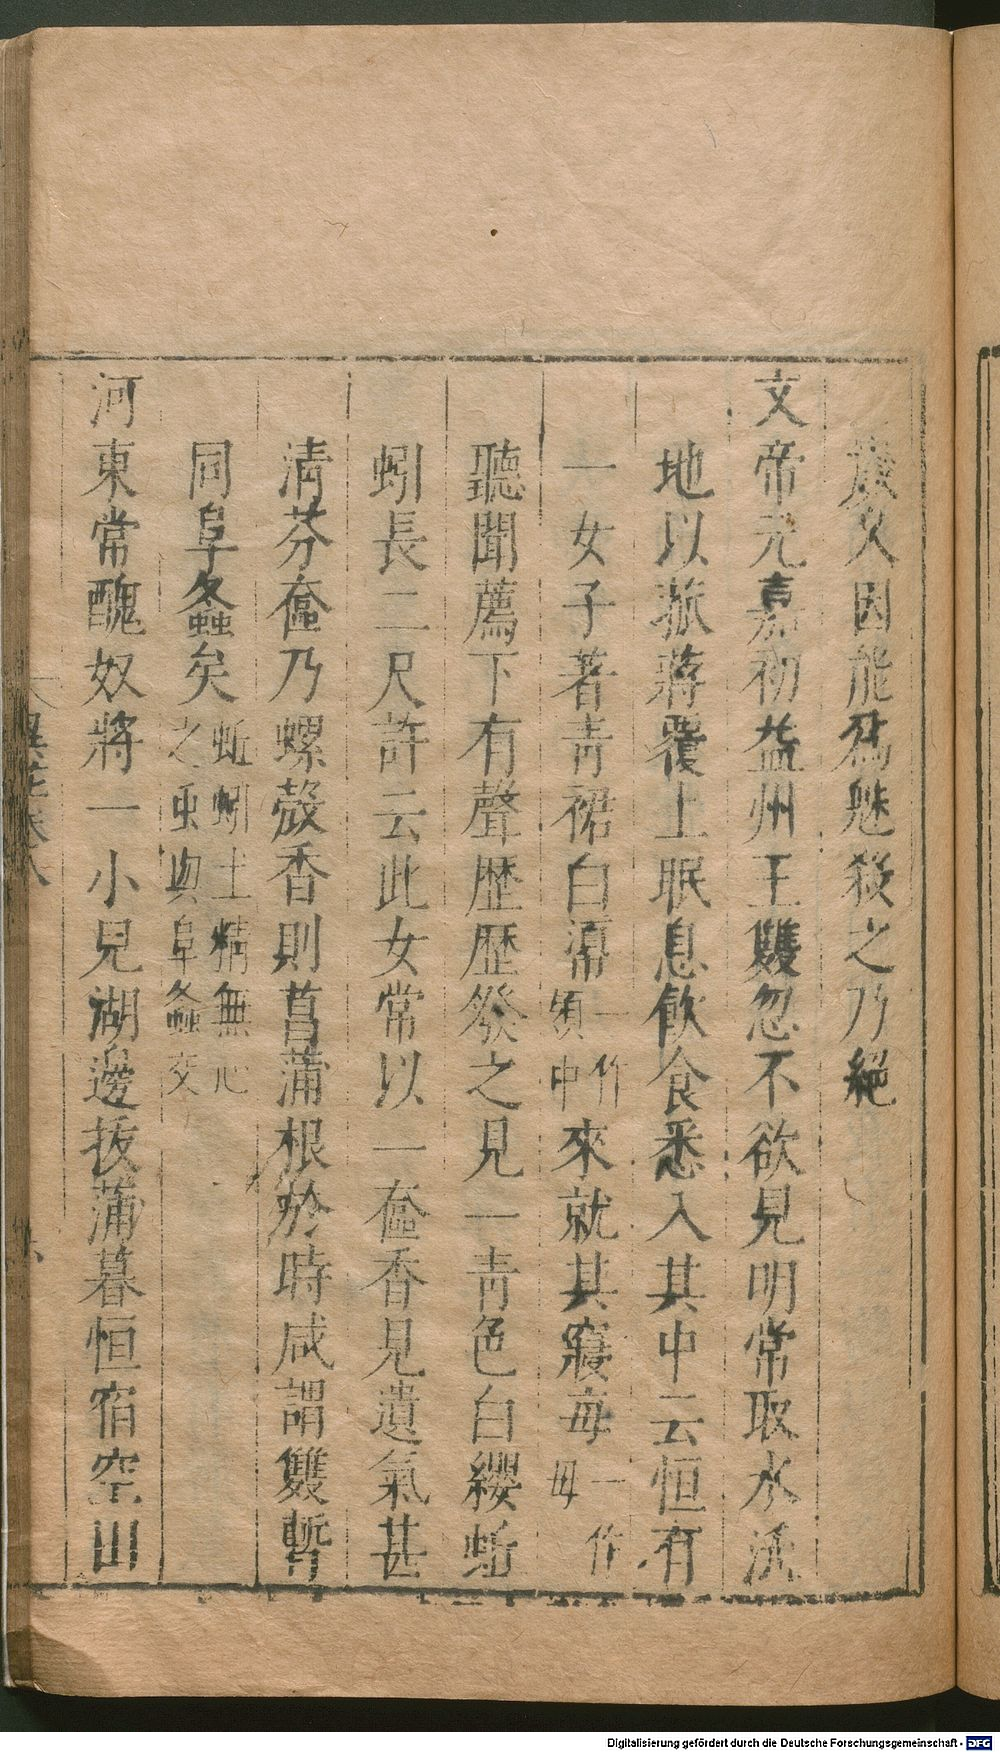 歲久因能為魅殺之乃絕
文帝元嘉初益州王雙忽不欲見明常取水沃
地以菰蔣覆上眠息飲食悉入其中云恒有
一女子著青裙白𢄼一作領巾來就其寢每一作毋
聽聞薦下有聲歷歷發之見一青色白纓蚯
蚓長二尺許云此女常以一奩香見遺氣甚
清芬奩乃螺殼香則菖蒲根於時咸謂雙暫
同阜螽矣蚯蚓土精無心之虫與阜螽交
河東常醜奴將一小兒湖邊拔蒲暮恒宿空田
異苑卷八
Digitalisierung gefördert durch die Deutsche Forschungsgemeinschaft - DFG